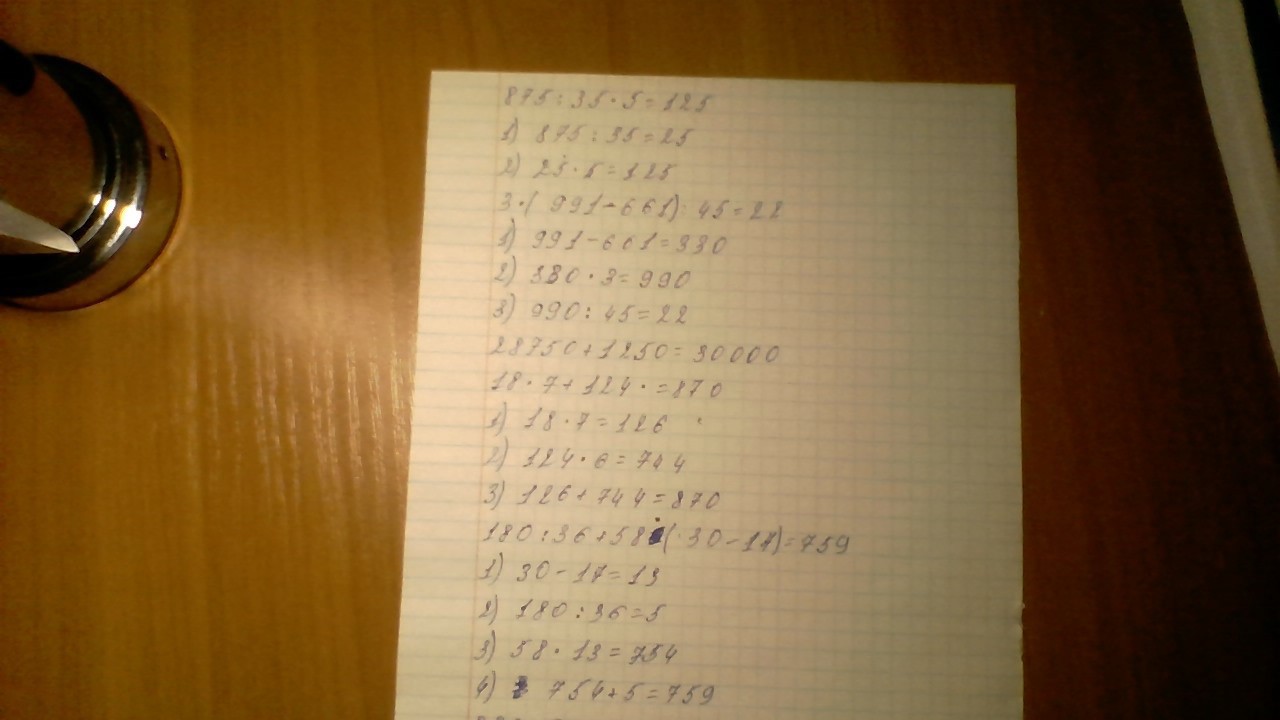 875:35·5=125
1) 875:35=25
2) 25·5=125
3·(991-661):45=22
1) 991-661=330
2) 330·3=990
3) 990:45=22
28750+1250=30000
18·7+124·=870
1) 18·7=126
2) 124·6=744
3) 126+744=870
180:36+58·(30-17)=759
1) 30-17=13
2) 180:36=5
3) 58·13=754
4) 754+5=759